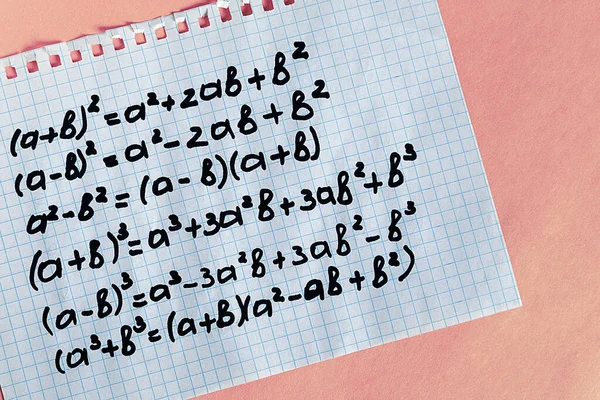 (a+b)²=a²+2ab+b²
(a-b)²=a²-2ab+b²
a²-b²=(a-b)(a+b)
(a+b)³=a³+3a²b+3ab²+b³
(a-b)³=a³-3a²b+3ab²-b³
(a³+b³=(a+b)(a²-ab+b²)